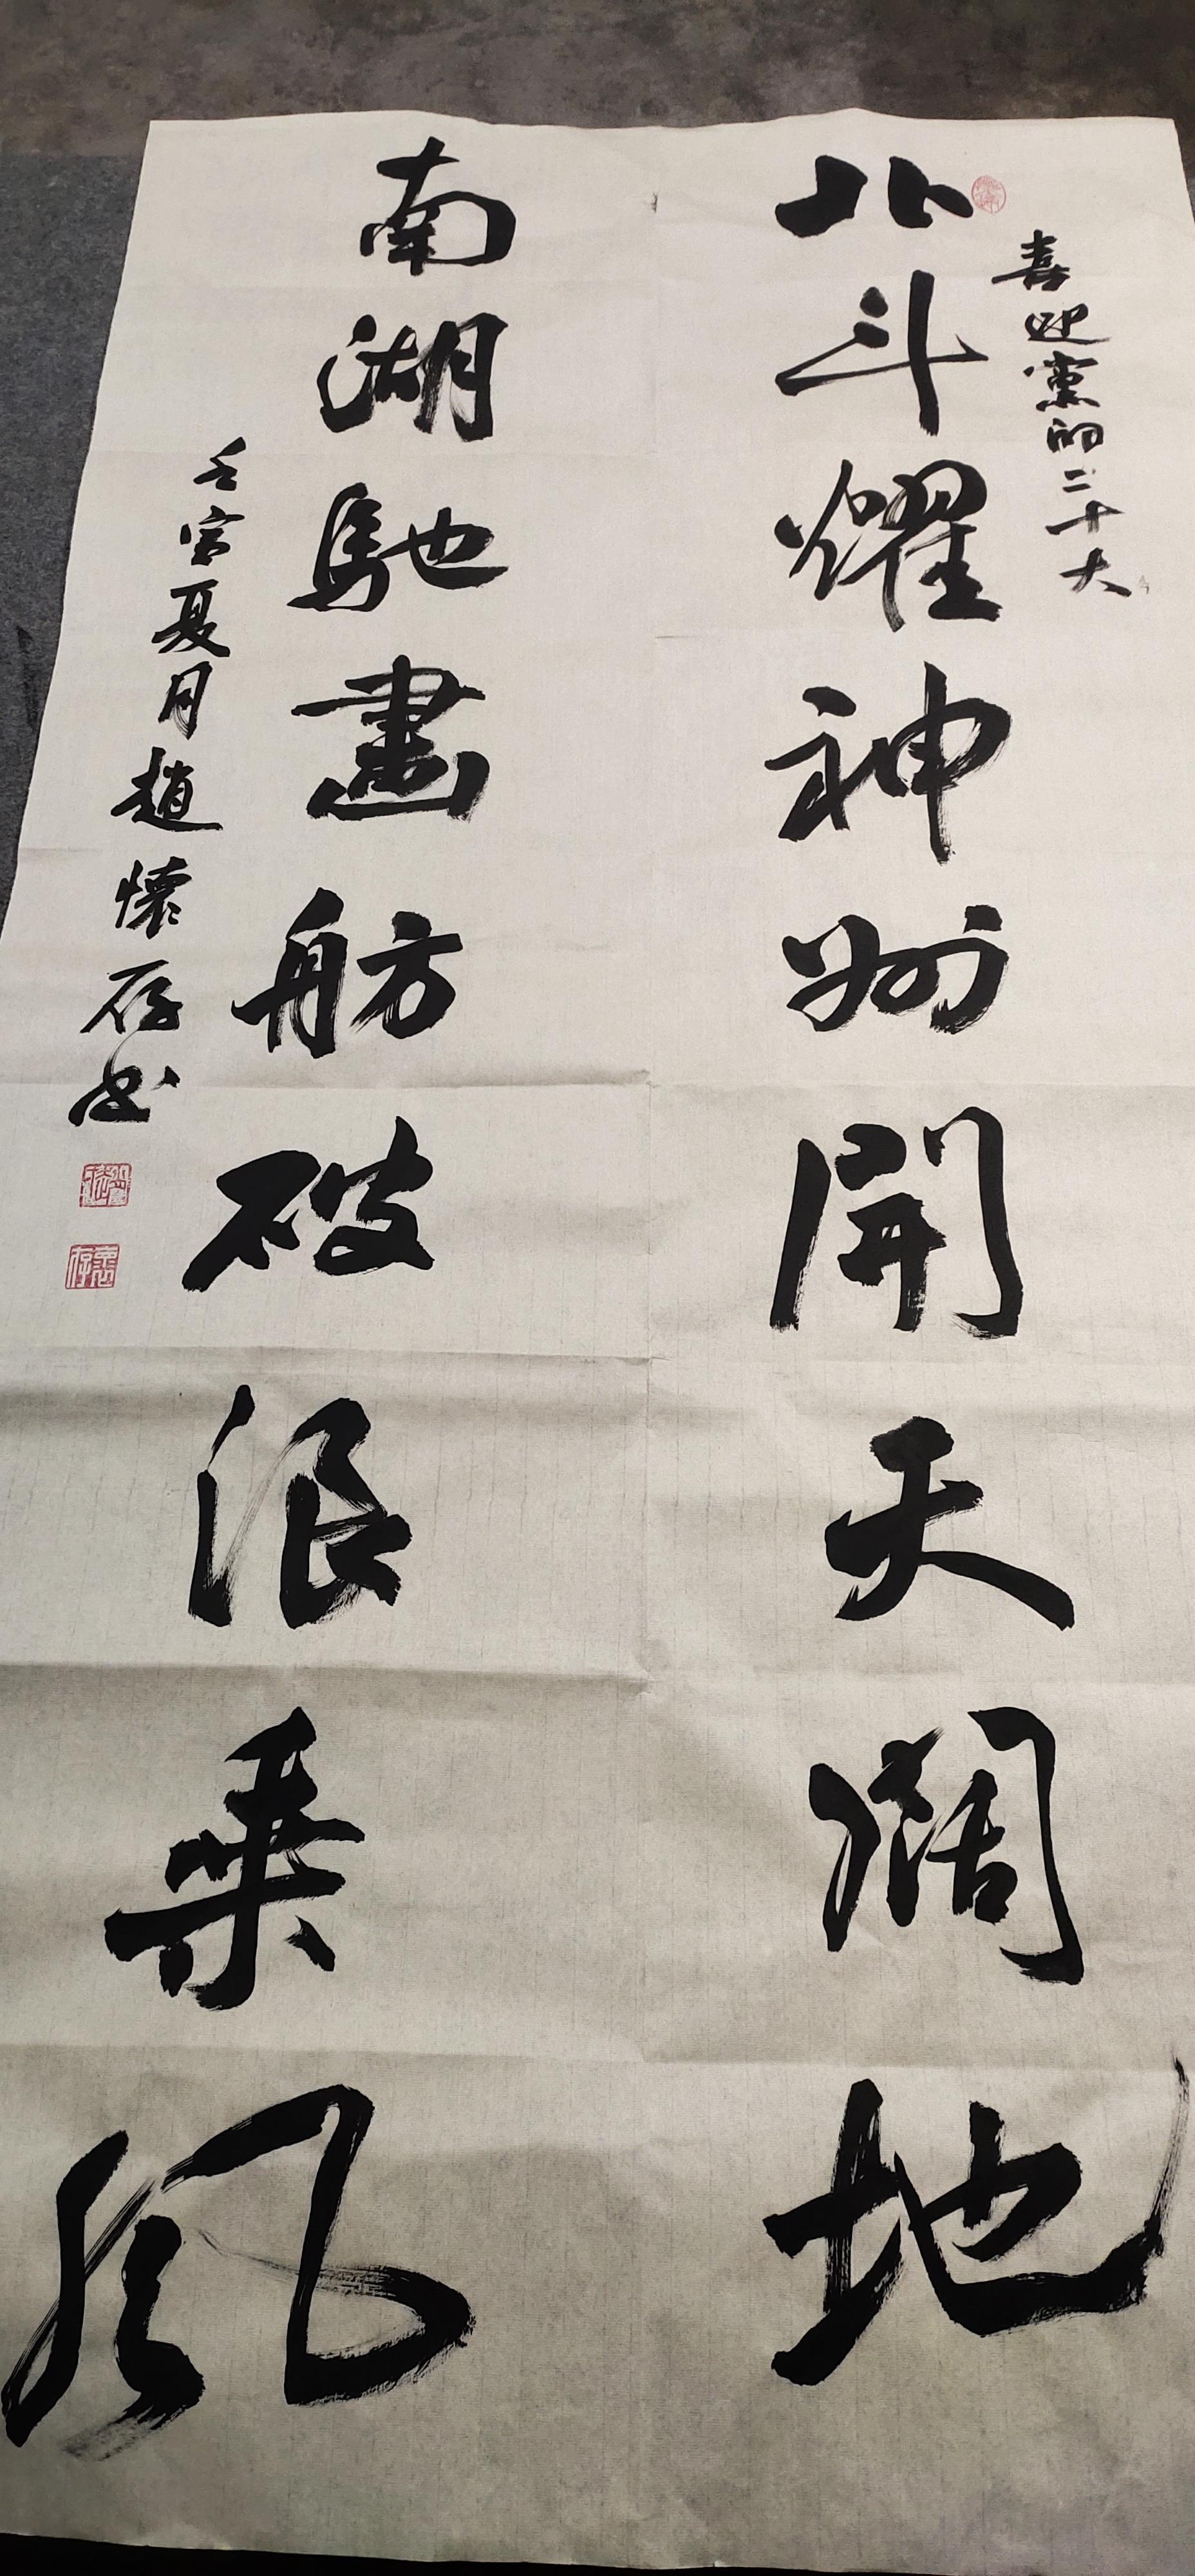 喜迎黨的二十大
北斗耀神州開天闊地
南湖馳畫舫破浪乘風
壬寅夏月趙懷存书
懷存